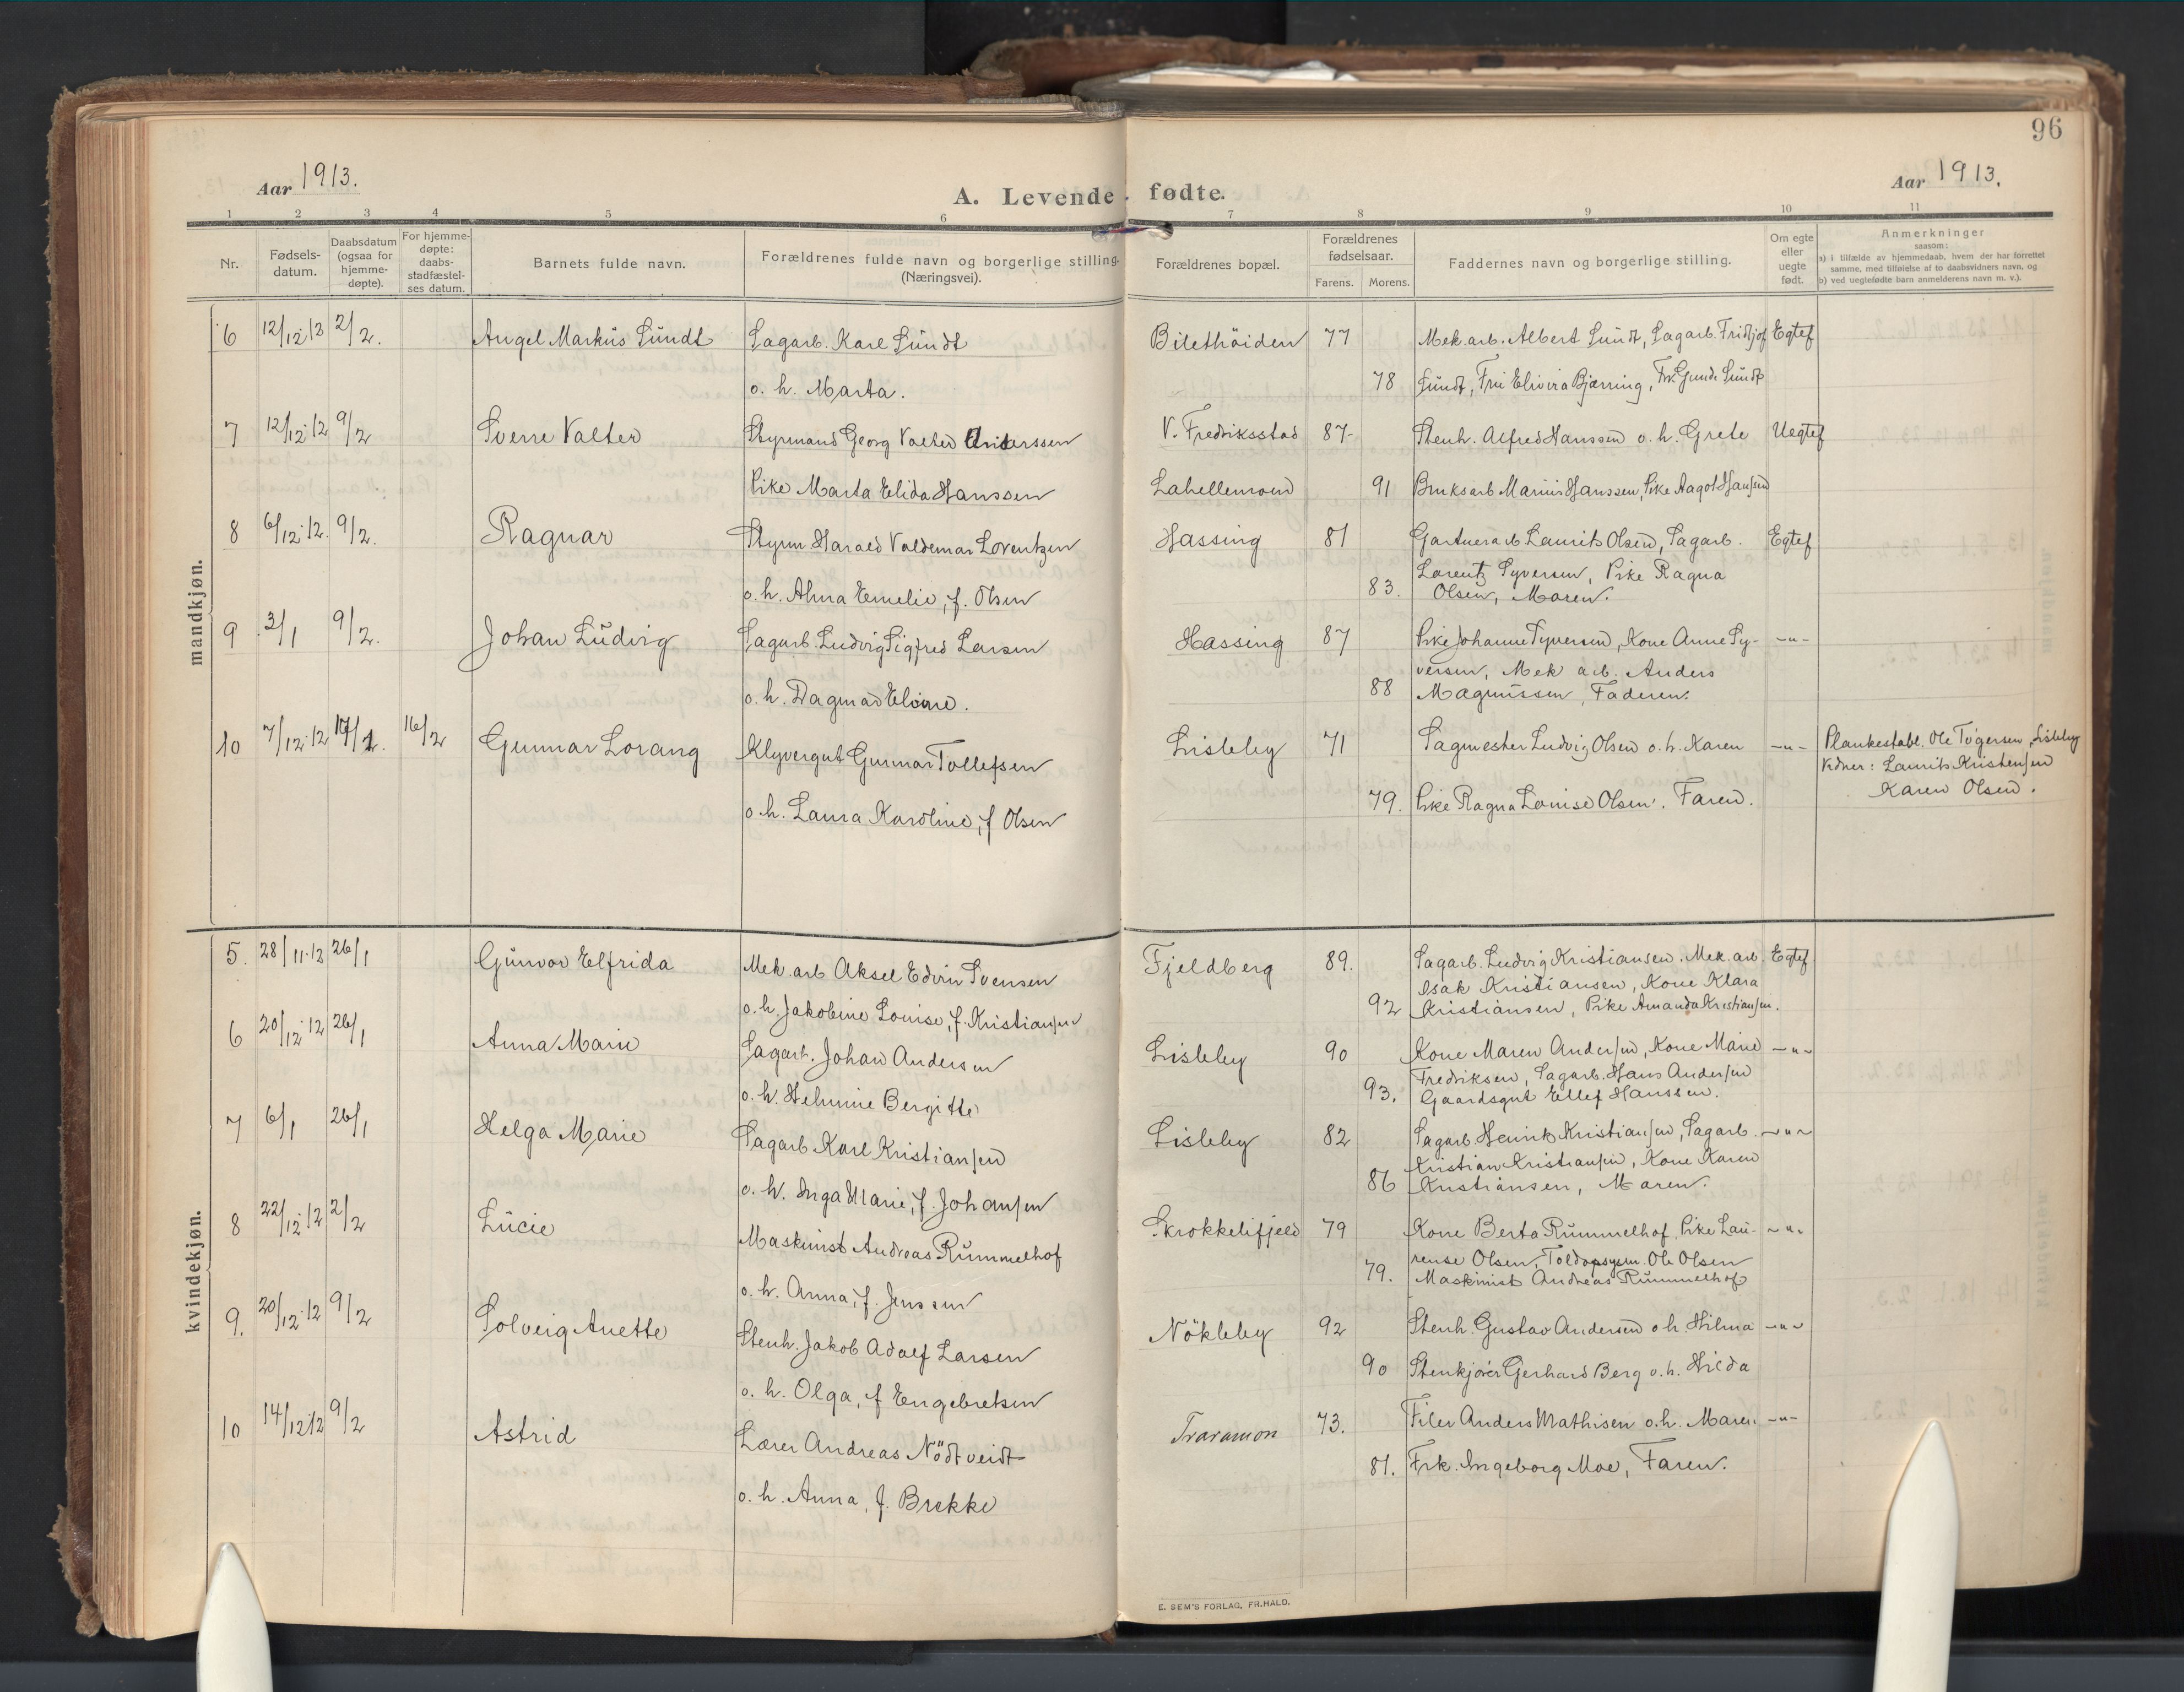 96
Aar 1913.
A. Levende fødte.
Aar 1913.
1 2 3 4 5 6 7 8 9 10 11
Nr.
Fødsels-
datum.
Daabsdatum
(ogsaa for
hjemme-
døpte).
For hjemme-
døpte:
daabs-
stadfæstel-
ses datum.
Barnets fulde navn.
Forældrenes fulde navn og borgerlige stilling.
(Næringsvei).
Forældrenes bopæl.
Forældrenes
fødselsaar.
Farens. Morens.
Faddernes navn og borgerlige stilling.
Om egte
eller
uegte
født.
Anmerkninger
saasom:
a) i tilfælde av hjemmedaab, hvem der har forrettet
samme, med tilføielse af to daabsvidners navn, og
b) ved uegtefødte barn anmelderens navn m. v.).
mandkjøn.
6 12/12.12 2/2. Angel Markus Sundt Sagarb. Karl Sundt Bilethöiden 77 Mek.arb. Albert Sundt, Sagarb. Fridtjof Egtef
o. h. Marta. 78 Sundt, Fru Elivira Bjærring, Frk. Gunda Sundt
7 12/12.12 9/2 Sverre Valter Styrmand Georg Valter Anderssen V. Fredriksstad 87 Stenh. Alfred Hanssen o. h. Grete Uegtef
Pike Marta Elida Hanssen Lahellemoen 91 Bruksarb Marius Hanssen, Pike Aagot Hansen
8 6/12.12. 9/2. Ragnar Styrm Harald Valdemar Lorentzen Hassing 81 Gartnerarb Laurits Olsen, Sagarb. Egtef
o. h. Alma Emelie, f. Olsen 83. Lorentz Syversen, Pike Ragna
Olsen, Moren.
9 3/1 9/2. Johan Ludvig Sagarb. Ludvig Sigfred Larsen Hassing 87 Pike Johanne Syversen, Kone Anne Sy- -"-
versen, Mek arb. Anders
o. h. Dagmar Eline. 88 Magnussen, Faderen.
10 7/12.12 17/1. 16/2 Gunnar Lorang Klyvergut Gunnar Tollefsen Lisleby 71 Sagmester Ludvig Olsen o. h. Karen -"- Plankestabl. Ole Tögersen, Lisleby
Vidner: Laurits Kristensen
Karen Olsen.
o. h. Laura Karoline, f Olsen 79. Pike Ragna Louise Olsen. Faren.
kvindekjøn.
5. 28/11.12 26/1 Gunvor Elfrida Mek.arb Aksel Edvin Svensen Fjeldberg 89. Sagarb. Ludvig Kristiansen. Mek.arb. Egtef
Isak Kristiansen, Kone Klara
o. h. Jakobine Louise, f. Kristiansen 92 Kristiansen, Pike Amanda Kristiansen.
6 20/12.12 26/1 Anna Marie Sagarb. Johan Andersen Lisleby 90 Kone Maren Andersen, Kone Marie -"-
Fredriksen, Sagarb. Hans Andersen
o. h. Helmine Bergitte 93. Gaardsgut Ellef Hanssen.
7 6/1 26/1 Helga Marie Sagarb Karl Kristiansen Lisleby 82 Sagarb. Henrik Kristiansen, Sagarb. -"-
Kristian Kristiansen, Kone Karen
o. h. Inga Marie, f. Johansen 86 Kristiansen, Moren.
8 22/12.12 2/2 Lucie Maskinist Andreas Rummelhof Skrokkelifjeld 79 Kone Berta Rummelhof, Pike Lau- -"-
rense Olsen, Toldopsynm. Ole Olsen
o. h. Anna, f. Jenssen 79. Maskinist Andreas Rummelhof
9. 20/12.12 9/2 Solveig Anette Stenh. Jakob Adolf Larsen Nökleby 92 Stenh. Gustav Andersen o. h. Hilma -"-
o. h. Olga, f Engebretsen 90 Stenkjörer Gerhard Berg o. h. Hilda
10 14/12.12 9/2 Astrid Lærer Andreas Nödtveidt Traramon 73. Filer Anders Mathisen o. h. Maren -"-
o. h. Anna, f. Brekke 81. Frk. Ingeborg Moe, Faren.
E. SEM'S FORLAG, FR.HALD.